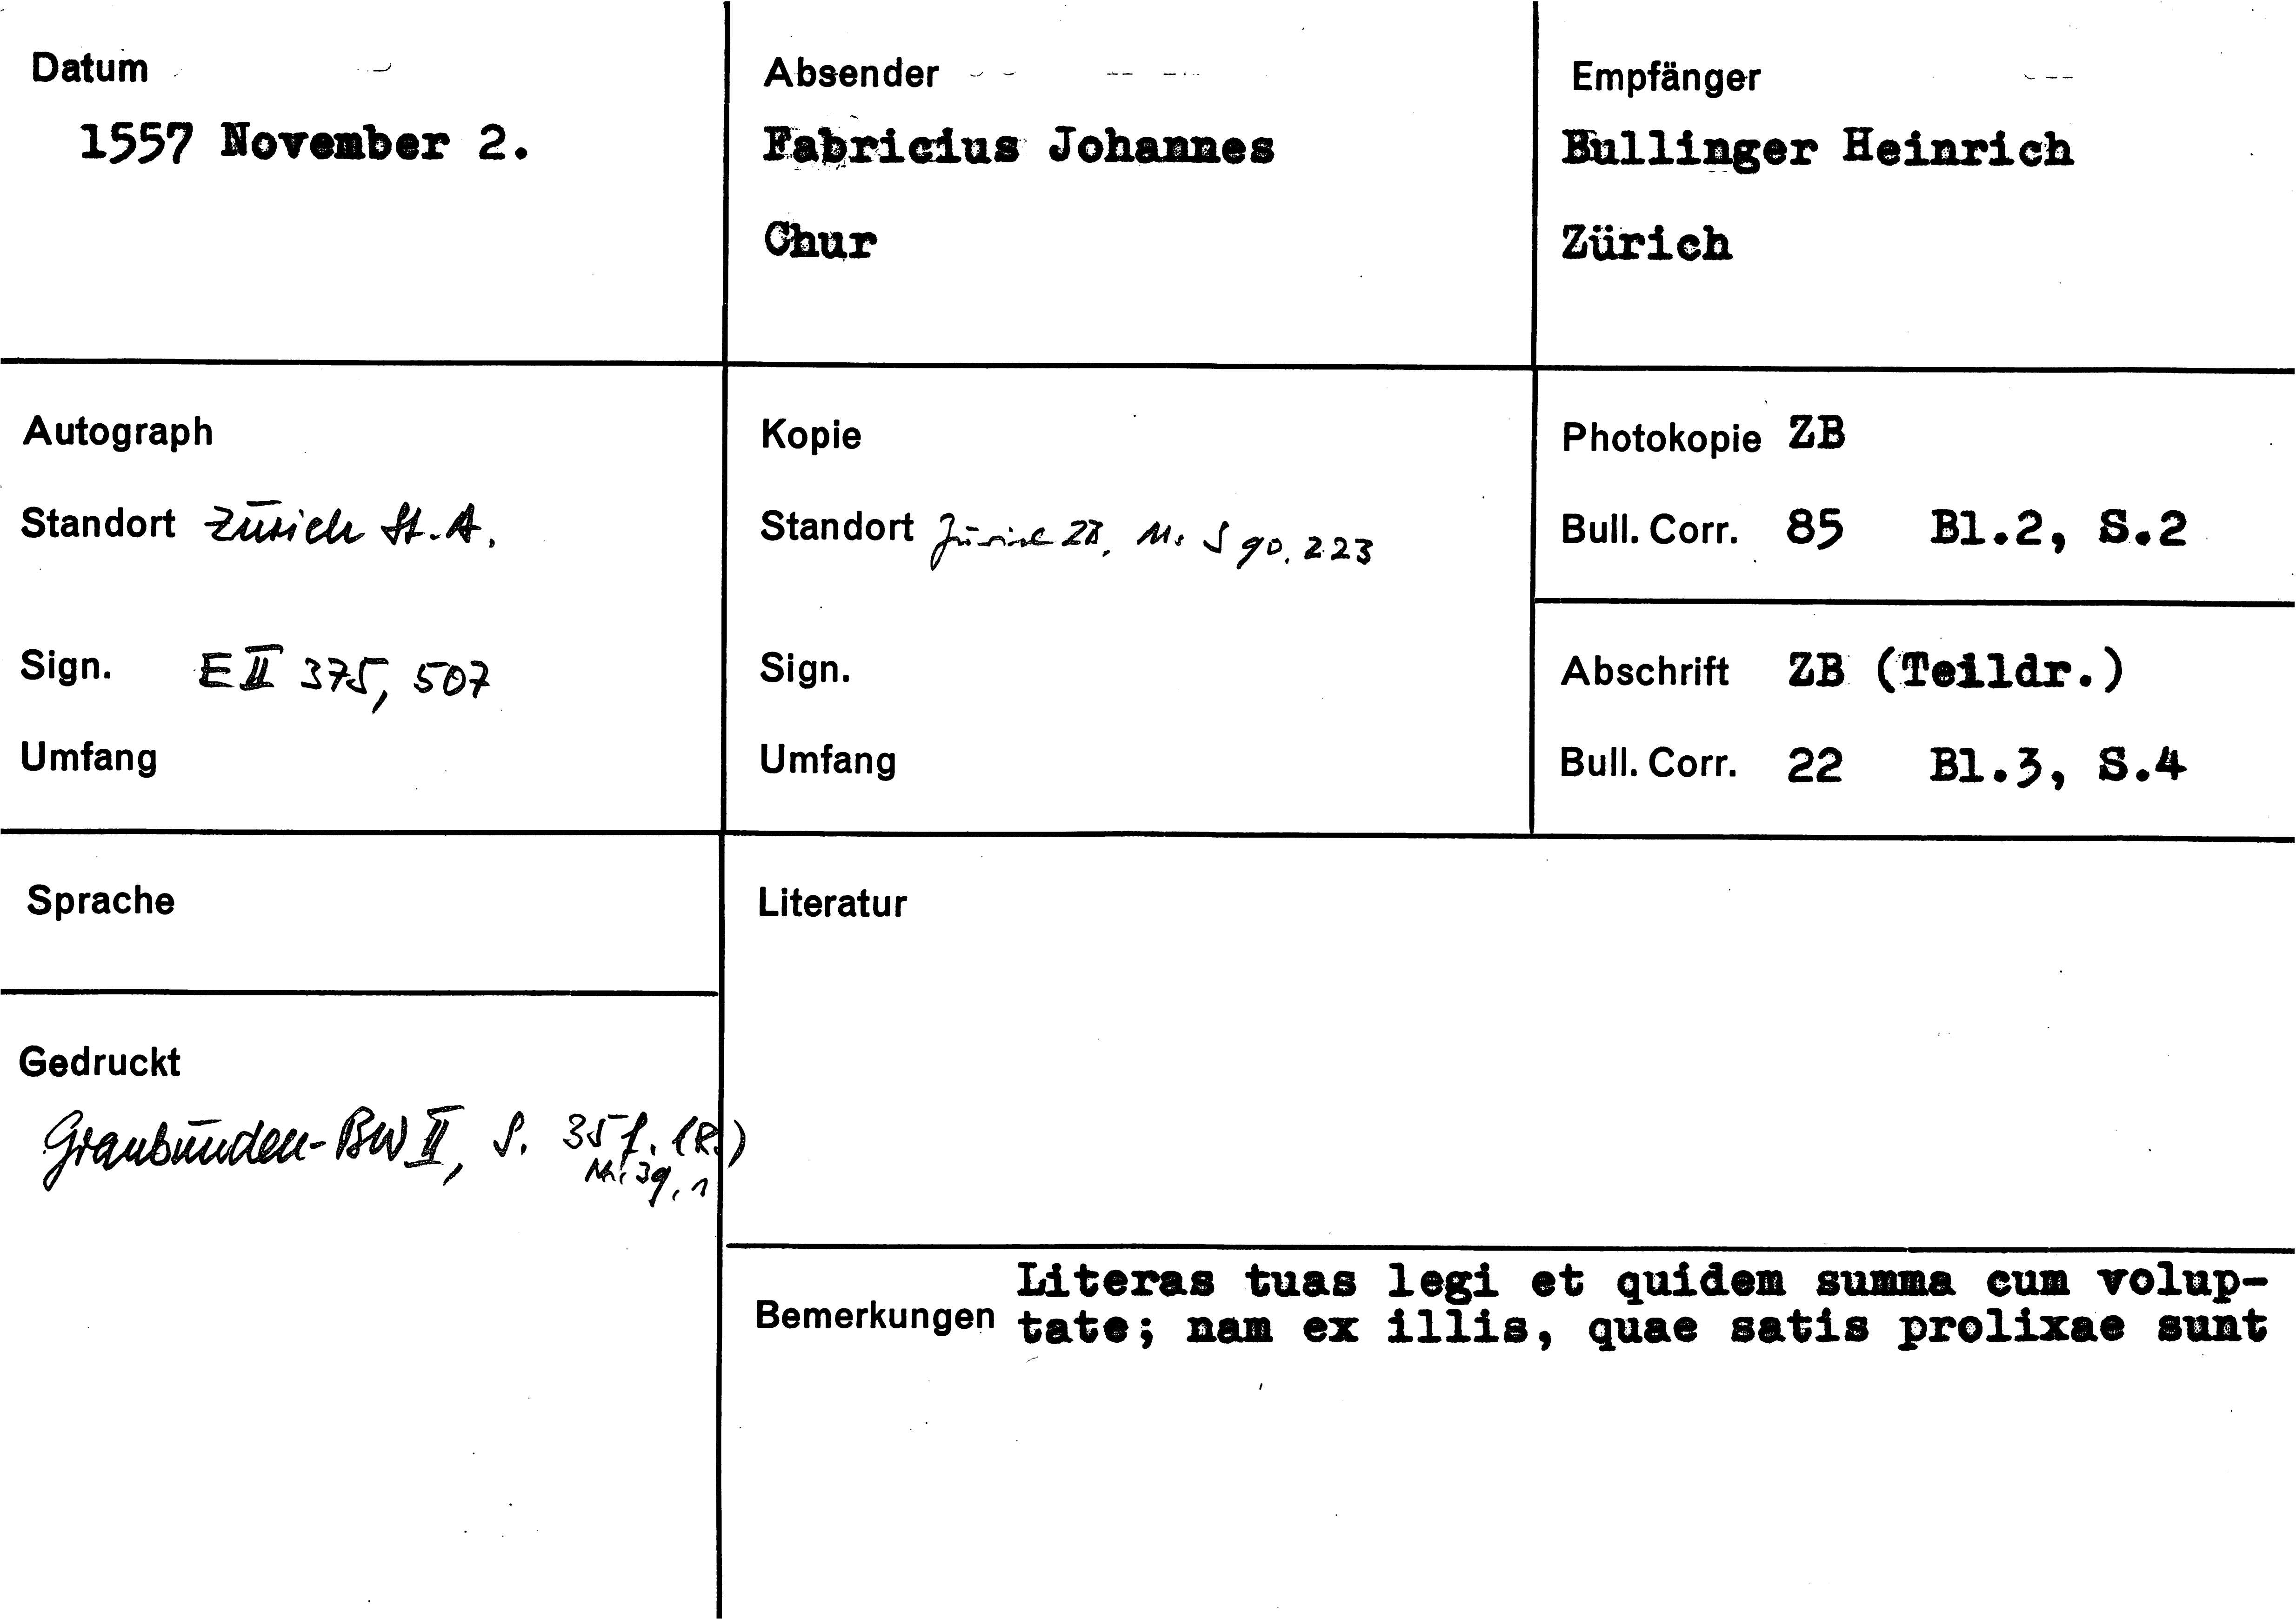 Datum
1557 November 2.
Absender
Fabricius Johannes
Chur
Empfänger
Bullinger Heinrich
Zürich
Autograph
Standort Zürich St.A.
Sign. E II 375, 507
Umfang
Kopie
Standort Zürich ZB, Ms S 90, 223
Sign.
Umfang
Photokopie ZB
Bull. Corr. 85 Bl.2, S.2
Abschrift ZB (Teildr.)
Bull. Corr. 22 Bl.3, S.4
Sprache
Gedruckt
Graubünden-BW II, S. 35 f. (R.)
Nr. 39, 1
Literatur
Bemerkungen
Literas tuas legi et quidem summa cum volup-
tate; nam ex illis, quae satis prolixae sunt